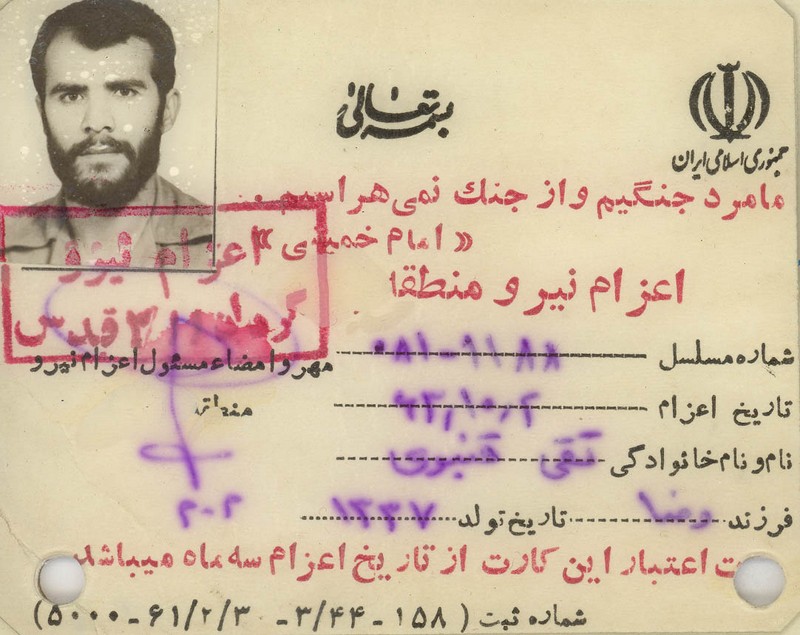 بسمه تعالی
جمهوری اسلامی ایران
ما مرد جنگیم و از جنك نمی هراسیم
« امام خمینی »
اعزام نیرو منطقه
اعزام نیرو
قدس
شماره مسلسل
مهر و امضاء مسئول اعزام نیرو
تاریخ اعزام
نام و نام خانوادگی تقی قنبری
فرزند رضا تاریخ تولد ۱۳۳۷
ت اعتبار این کارت از تاریخ اعزام سه ماه میباشد
شماره ثبت ( ۱۵۸ - ۳/۴۴ - ۶۱/۲/۳ - ۵۰۰۰)